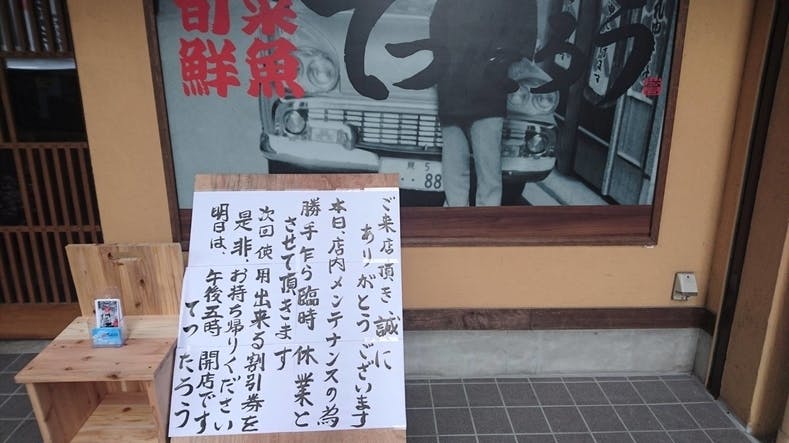 旬菜
鮮魚
てつたろう
ご来店頂き誠に
ありがとうございます
本日、店内メンテナンスの為
勝手乍ら臨時休業と
させて頂きます
次回使用出来る割引券を
是非、お持ち帰りください
明日は、午後五時開店です
てつたろう
88